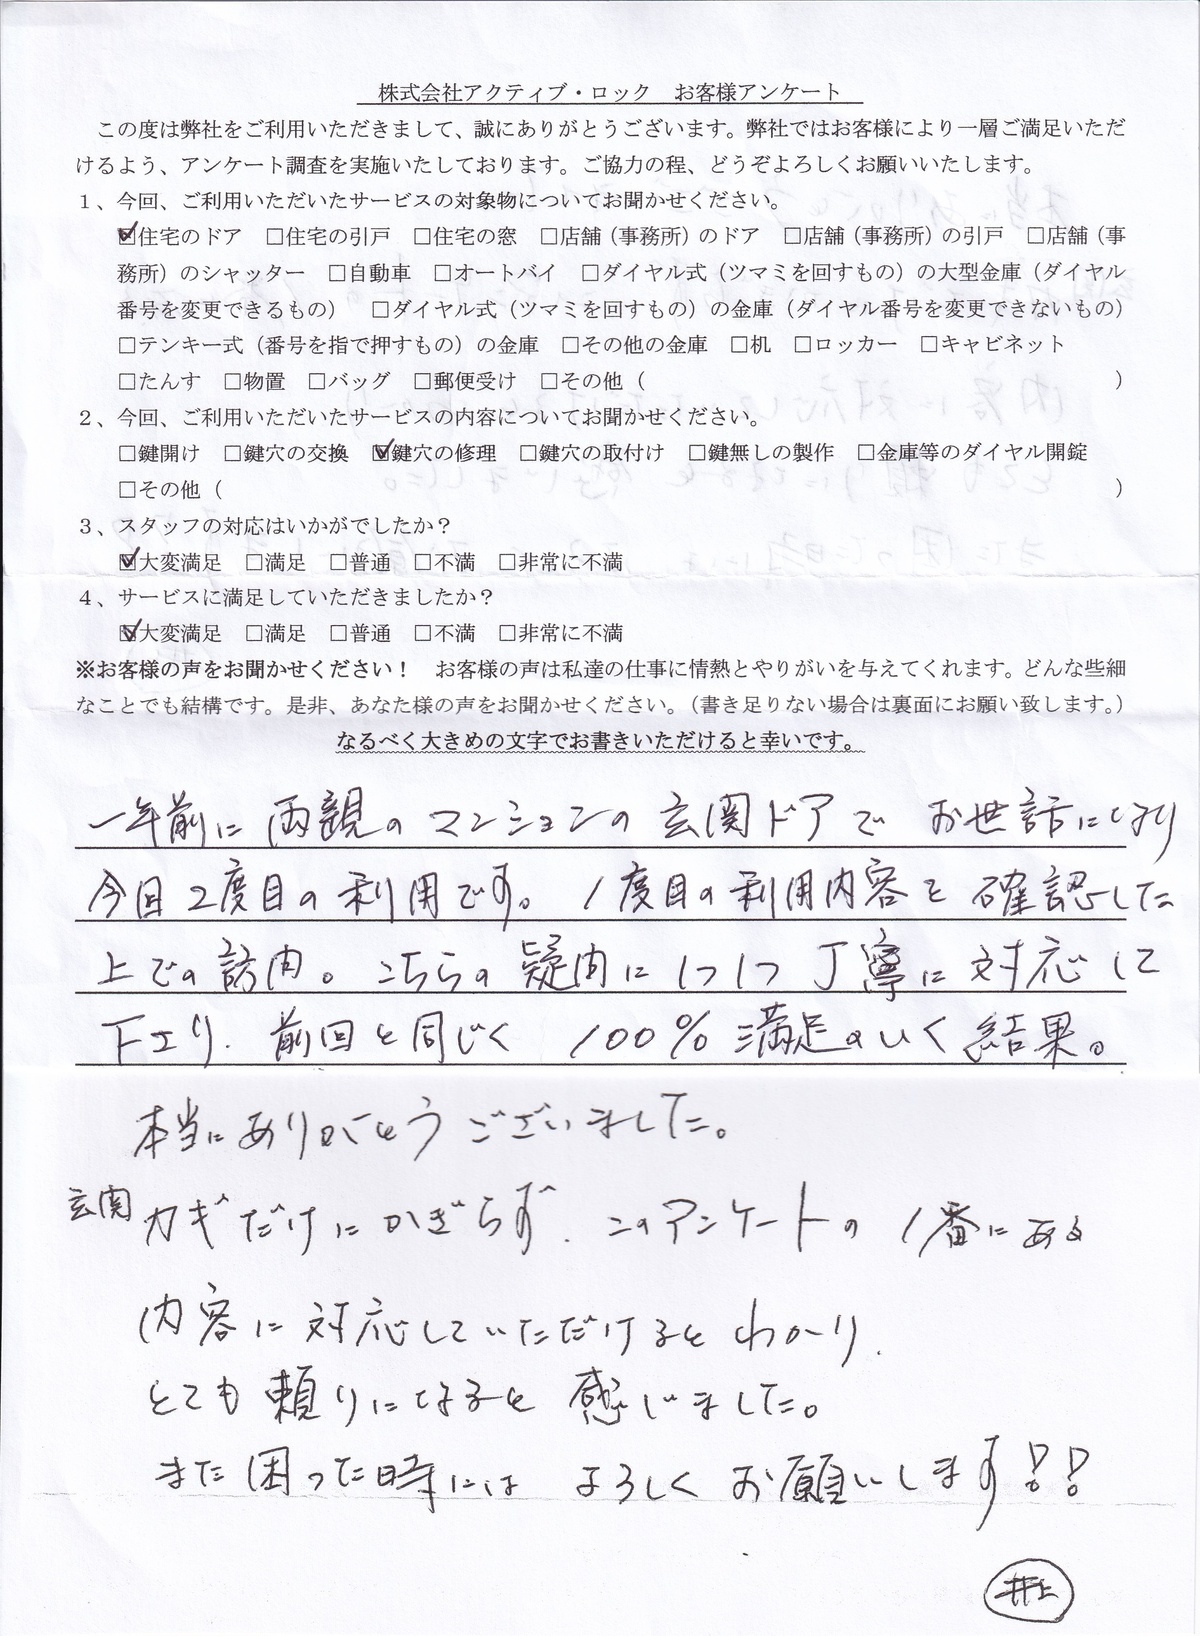 株式会社アクティブ・ロック　お客様アンケート
この度は弊社をご利用いただきまして、誠にありがとうございます。弊社ではお客様により一層ご満足いただ
けるよう、アンケート調査を実施いたしております。ご協力の程、どうぞよろしくお願いいたします。
1、今回、ご利用いただいたサービスの対象物についてお聞かせください。
☑住宅のドア　□住宅の引戸　□住宅の窓　□店舗（事務所）のドア　□店舗（事務所）の引戸　□店舗（事
務所）のシャッター　□自動車　□オートバイ　□ダイヤル式（ツマミを回すもの）の大型金庫（ダイヤル
番号を変更できるもの）　□ダイヤル式（ツマミを回すもの）の金庫（ダイヤル番号を変更できないもの）
□テンキー式（番号を指で押すもの）の金庫　□その他の金庫　□机　□ロッカー　□キャビネット
□たんす　□物置　□バッグ　□郵便受け　□その他（　　　）
2、今回、ご利用いただいたサービスの内容についてお聞かせください。
□鍵開け　□鍵穴の交換　☑鍵穴の修理　□鍵穴の取付け　□鍵無しの製作　□金庫等のダイヤル開錠
□その他（　　　）
3、スタッフの対応はいかがでしたか？
☑大変満足　□満足　□普通　□不満　□非常に不満
4、サービスに満足していただきましたか？
☑大変満足　□満足　□普通　□不満　□非常に不満
※お客様の声をお聞かせください！　お客様の声は私達の仕事に情熱とやりがいを与えてくれます。どんな些細
なことでも結構です。是非、あなた様の声をお聞かせください。（書き足りない場合は裏面にお願い致します。）
なるべく大きめの文字でお書きいただけると幸いです。
一年前に両親のマンションの玄関ドアでお世話になり
今回2度目の利用です。1度目の利用内容を確認した
上での訪問。こちらの疑問に1つ1つ丁寧に対応して
下さり、前回と同じく100％満足のいく結果。
本当にありがとうございました。
玄関カギだけにかぎらず、このアンケートの1番にある
内容に対応していただけるとわかり、
とても頼りになると感じました。
また困った時にはよろしくお願いします!!
井上